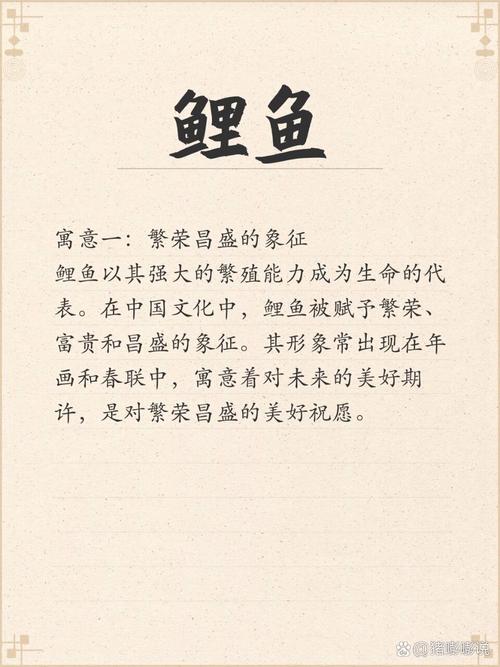 鲤鱼
寓意一：繁荣昌盛的象征
鲤鱼以其强大的繁殖能力成为生命的代
表。在中国文化中，鲤鱼被赋予繁荣、
富贵和昌盛的象征。其形象常出现在年
画和春联中，寓意着对未来的美好期
许，是对繁荣昌盛的美好祝愿。
@猪嘭嘭说